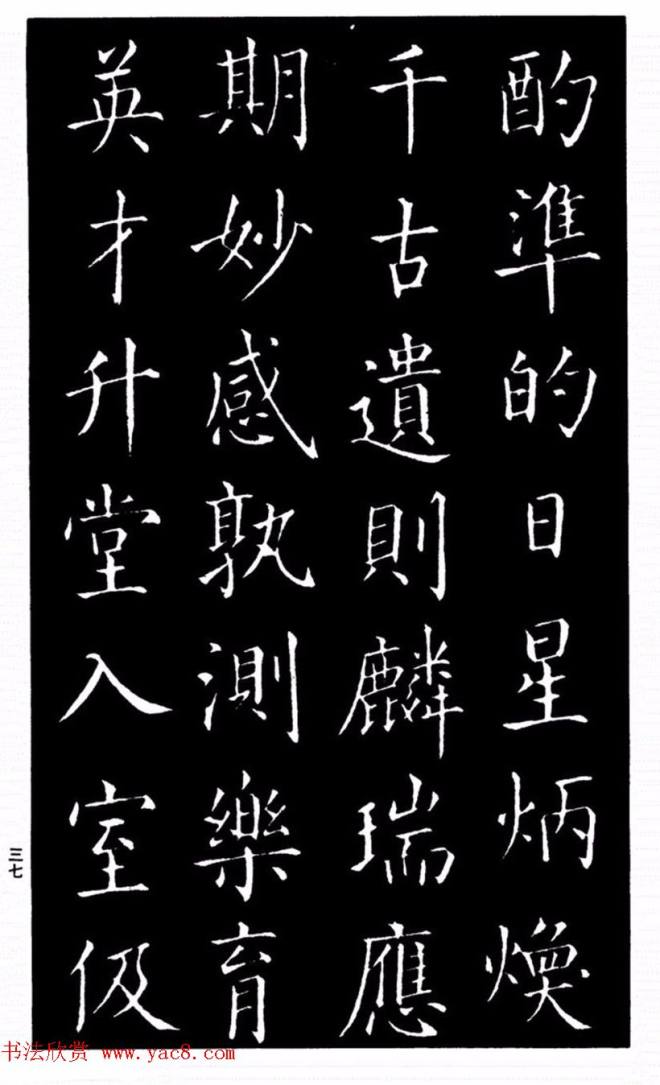 酌準的日星炳煥
千古遺則麟瑞應
期妙感孰測樂育
英才升堂入室伋
三七
书法欣赏 www.yac8.com